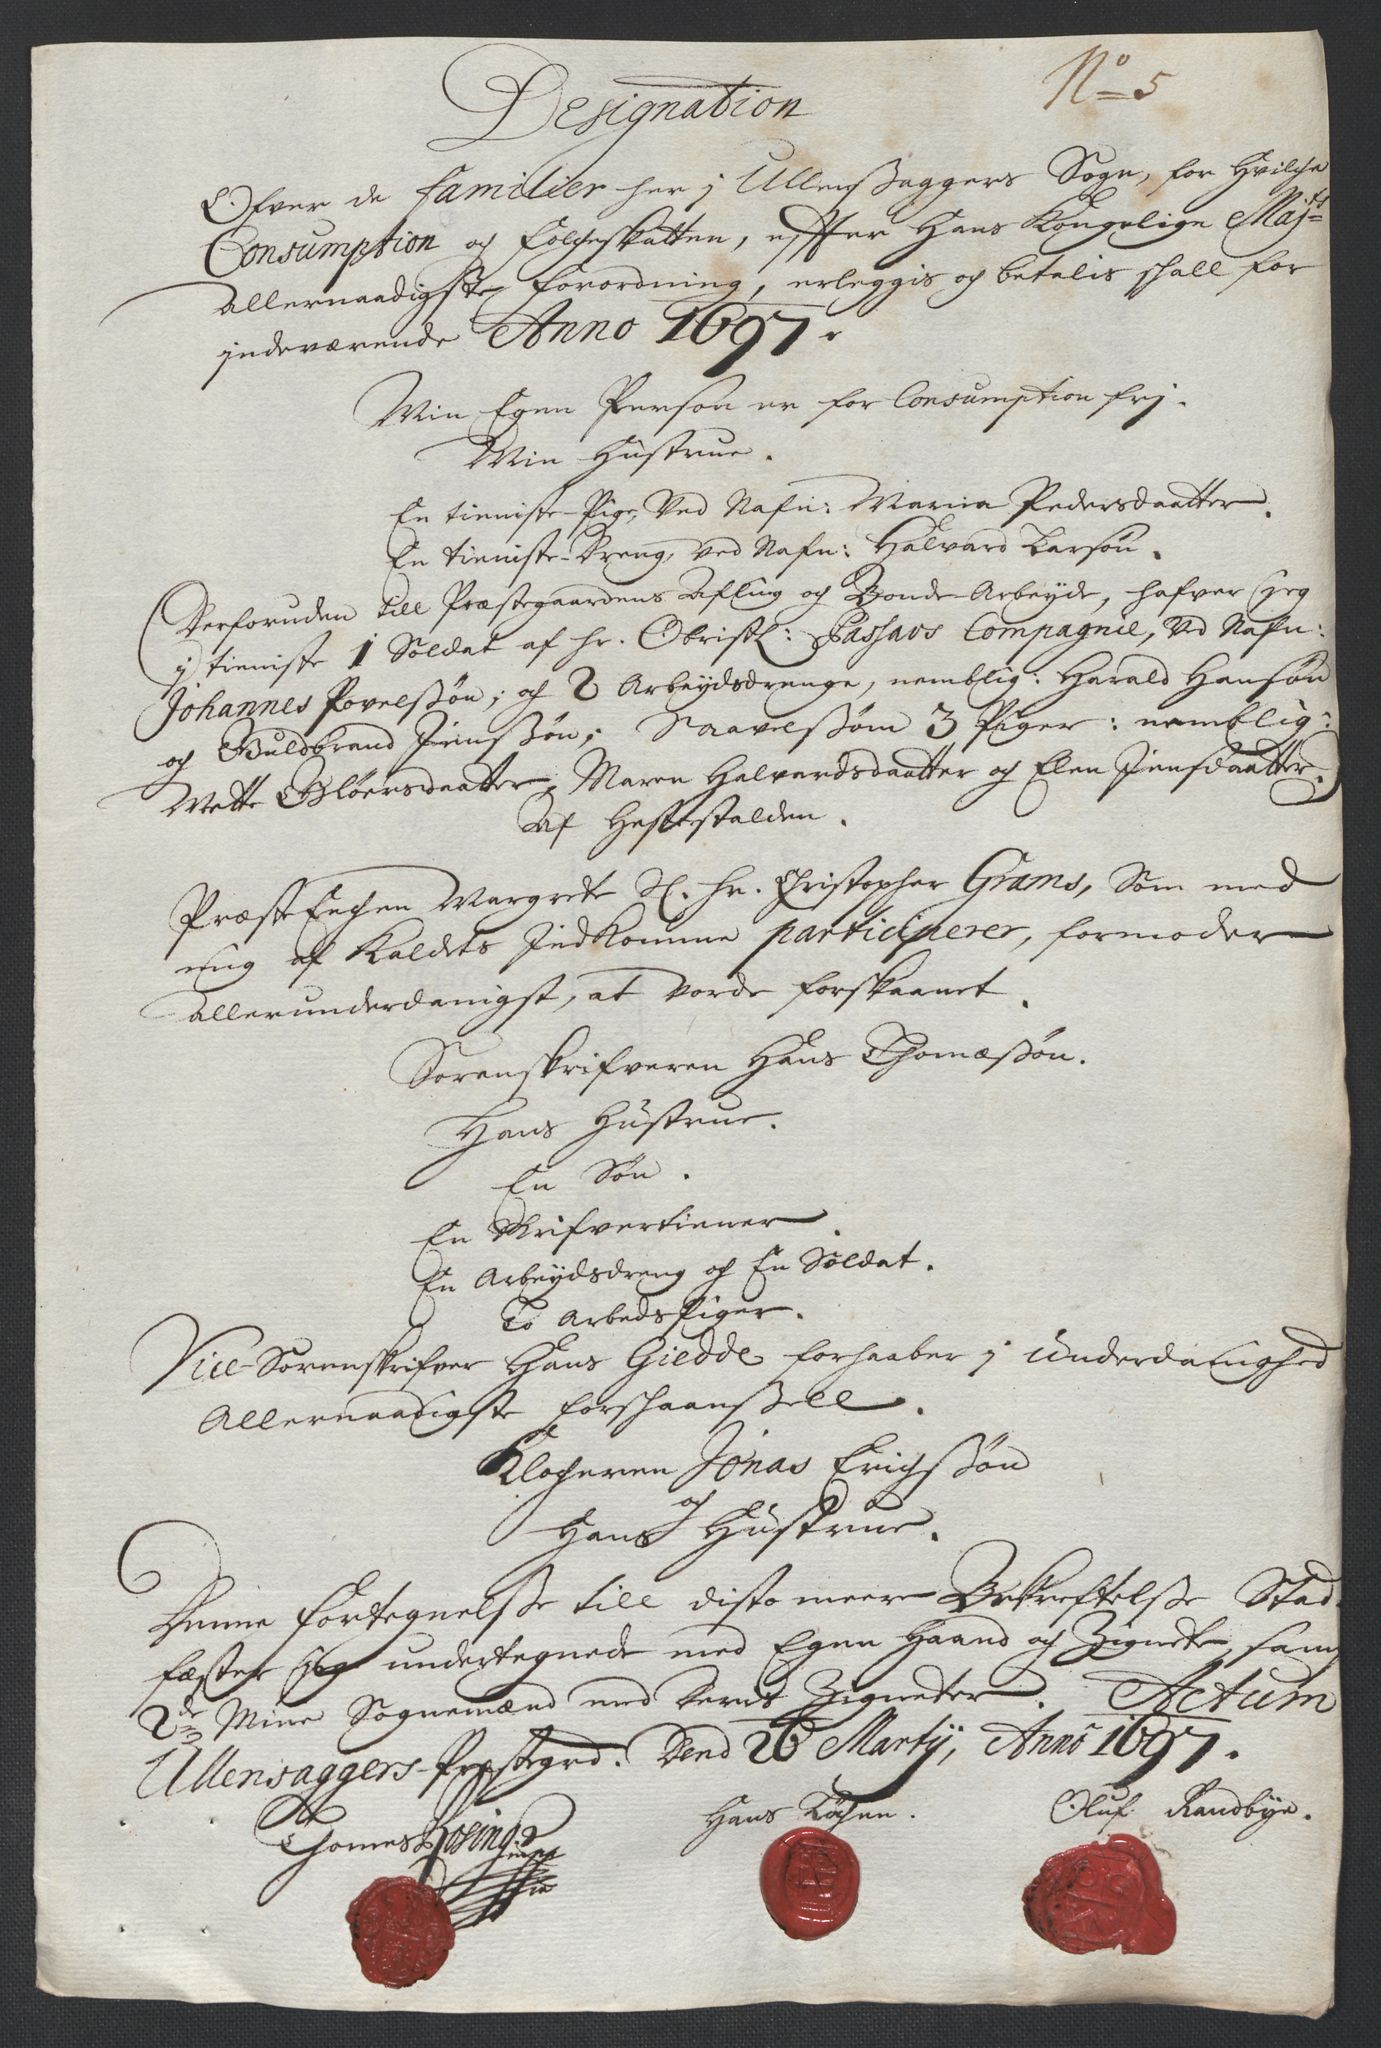 No 5
Designation
Ofver de familier her i Ullensaggers Sogn, for hvilche
Consumption og Folcheskatten, effter Hans Kongelige Majts
allernaadigste forordning, erleggis og betalis skall for
indeværende Anno 1697.
Min Egen Person er for Consumption frj.
Min Hustrue.
En tieniste-Pige, Ved Nafn: Maria Pedersdaatter.
En tieniste-Dreng, ved Nafn: Halvard Larsøn.
(Derforuden till Præstegaardens Afling og Bonde-Arbeyde, hafver jeg
j tieniste 1 Soldat af hr. Obristl: Passaus Compagnie, Ved Nafn:
Johannes Povelssøn; och 2 Arbeydsdrenge, nemblig: Harald Hansøn
og Guldbrand Jenssøn; Saavelssom 3 Piger: nemblig:
Mette Gloersdaatter; Maren Halvardsdaatter og Elen Jensdaatter.)
Af Hestestalden.
Præste Enchen Margrete Sl. hr. Christopher Grams, Som med
mig af Kaldets Indkomme participerer, formoder
allerunderdanigst, at vorde forskaanet.
Sorenskrifveren Hans Thomæssøn.
Hans Hustrue.
En Søn.
En Skrifvertiener.
En Arbeydsdreng og En Soldat.
To Arbeds Piger.
Vice-Sorenskrifver Hans Giedde forhaaber j underdanighed
Allernaadigste forskaanssell.
Klocheren Jonas Erichssøn
og
Hans Hustrue.
Denne fortegnelsse till disto meere Bekreftelsse Stad-
fæster jeg undertegnede med Egen Haand og Zignete, samt
2de Mine Sognemænd med deris Zigneter. Actum
Ullensaggers-Præstegrd. Dend 26 Martij, Anno 1697.
Thomes Rosing Hans Løchen. Oluf Randbye.